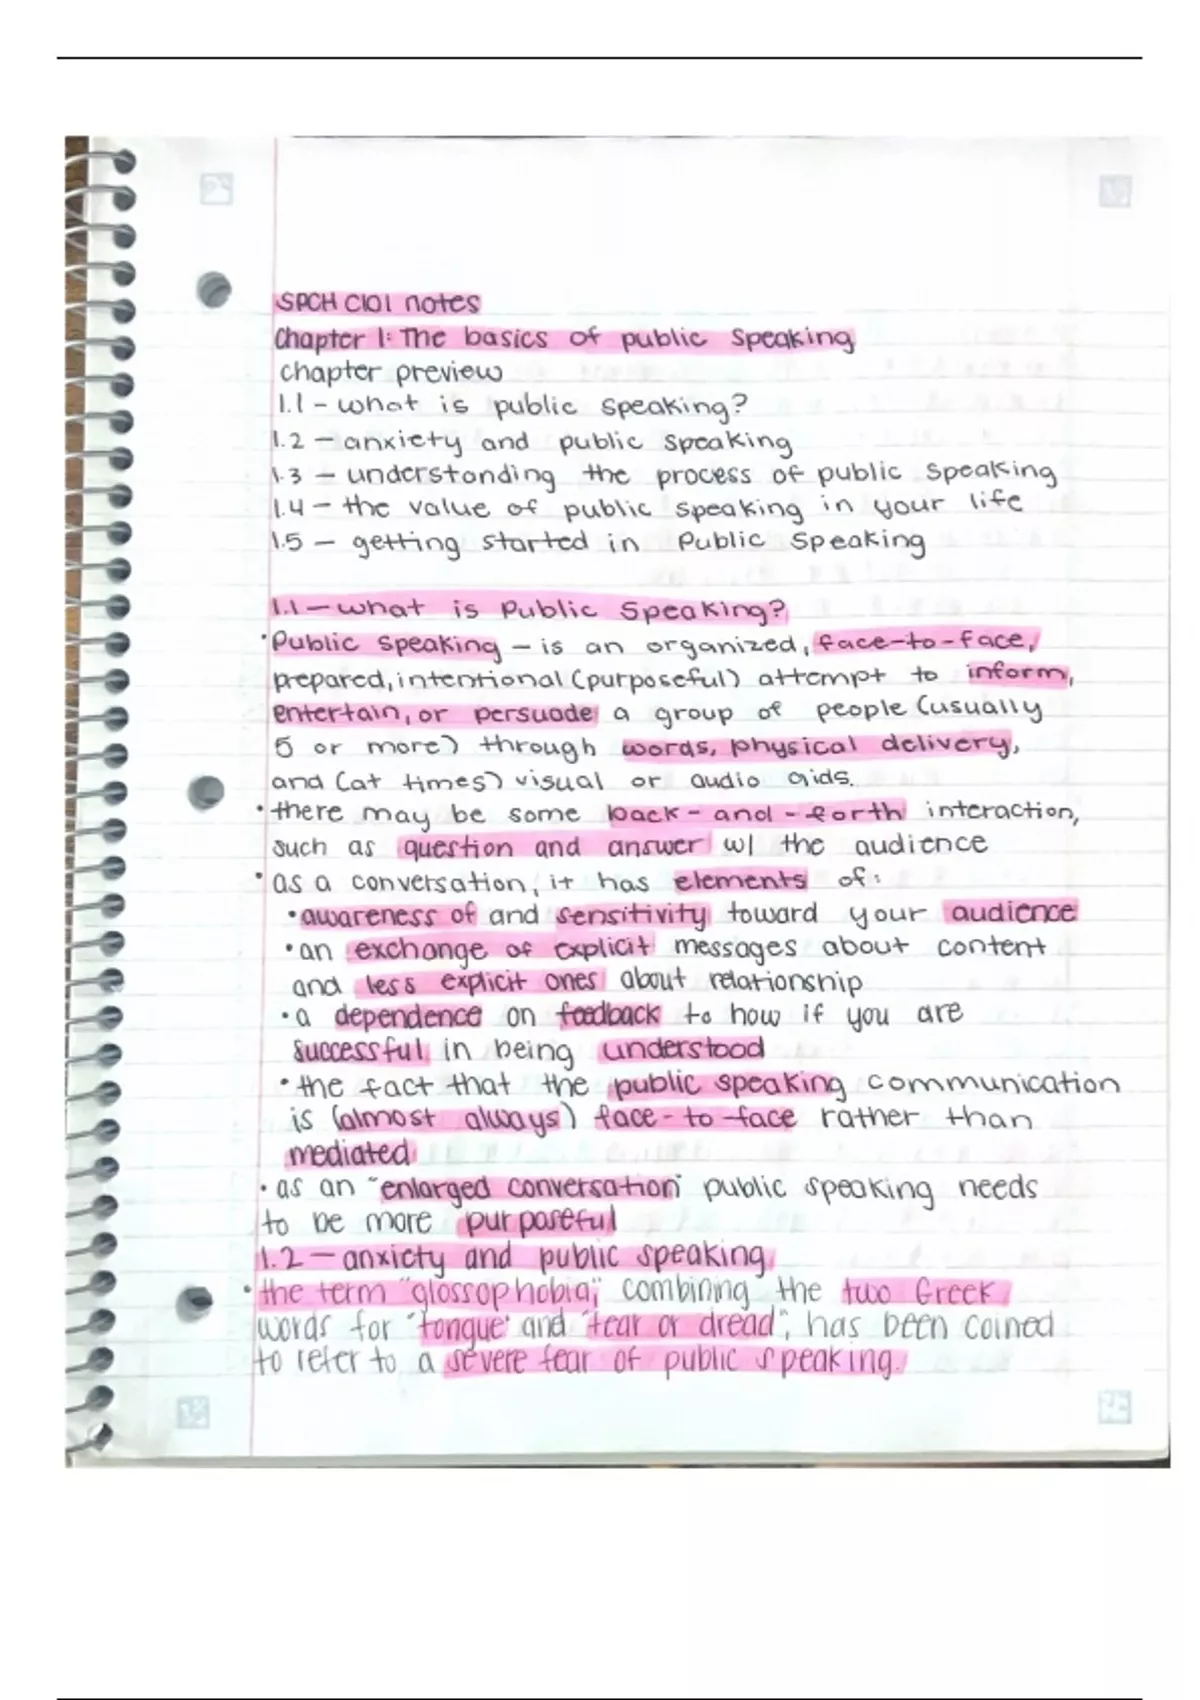 SPCH C101 notes
Chapter 1: The basics of public Speaking
chapter preview
1.1 - what is public speaking?
1.2 - anxiety and public speaking
1.3 - understanding the process of public speaking
1.4 - the value of public speaking in your life
1.5 - getting started in Public Speaking
1.1 - what is Public Speaking?
• Public speaking - is an organized, face-to-face,
prepared, intentional (purposeful) attempt to inform,
entertain, or persuade a group of people (usually
5 or more) through words, physical delivery,
and (at times) visual or audio aids.
• there may be some back-and-forth interaction,
such as question and answer w/ the audience
• as a conversation, it has elements of:
• awareness of and sensitivity toward your audience
• an exchange of explicit messages about content
and less explicit ones about relationship
• a dependence on feedback to how if you are
successful in being understood
• the fact that the public speaking communication
is (almost always) face-to-face rather than
mediated
• as an "enlarged conversation" public speaking needs
to be more purposeful
1.2 - anxiety and public speaking
• the term "glossophobia", combining the two Greek
words for "tongue" and "fear or dread", has been coined
to refer to a severe fear of public speaking.